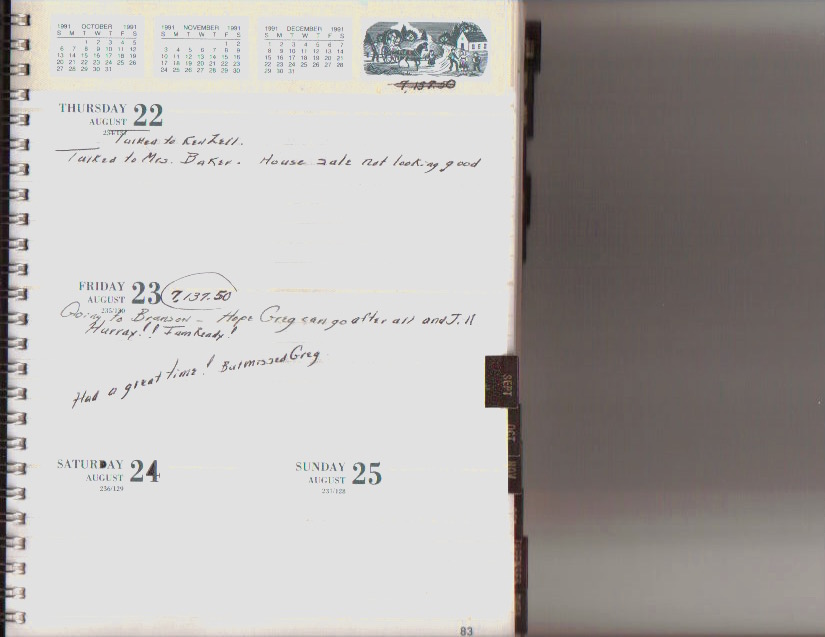 1991 OCTOBER 1991
S M T W T F S
1 2 3 4 5
6 7 8 9 10 11 12
13 14 15 16 17 18 19
20 21 22 23 24 25 26
27 28 29 30 31
1991 NOVEMBER 1991
S M T W T F S
1 2
3 4 5 6 7 8 9
10 11 12 13 14 15 16
17 18 19 20 21 22 23
24 25 26 27 28 29 30
1991 DECEMBER 1991
S M T W T F S
1 2 3 4 5 6 7
8 9 10 11 12 13 14
15 16 17 18 19 20 21
22 23 24 25 26 27 28
29 30 31
7,137.50
THURSDAY 22
AUGUST
234/131
Talked to Ken Zell.
Talked to Mrs. Baker. House sale not looking good
FRIDAY 23 7,137.50
AUGUST
235/130
Going to Branson - Hope Greg can go after all and Jill
Hurray!! I am Ready!
Had a great time! But missed Greg
SATURDAY 24
AUGUST
236/129
SUNDAY 25
AUGUST
237/128
SEPT
OCT
NOV
83